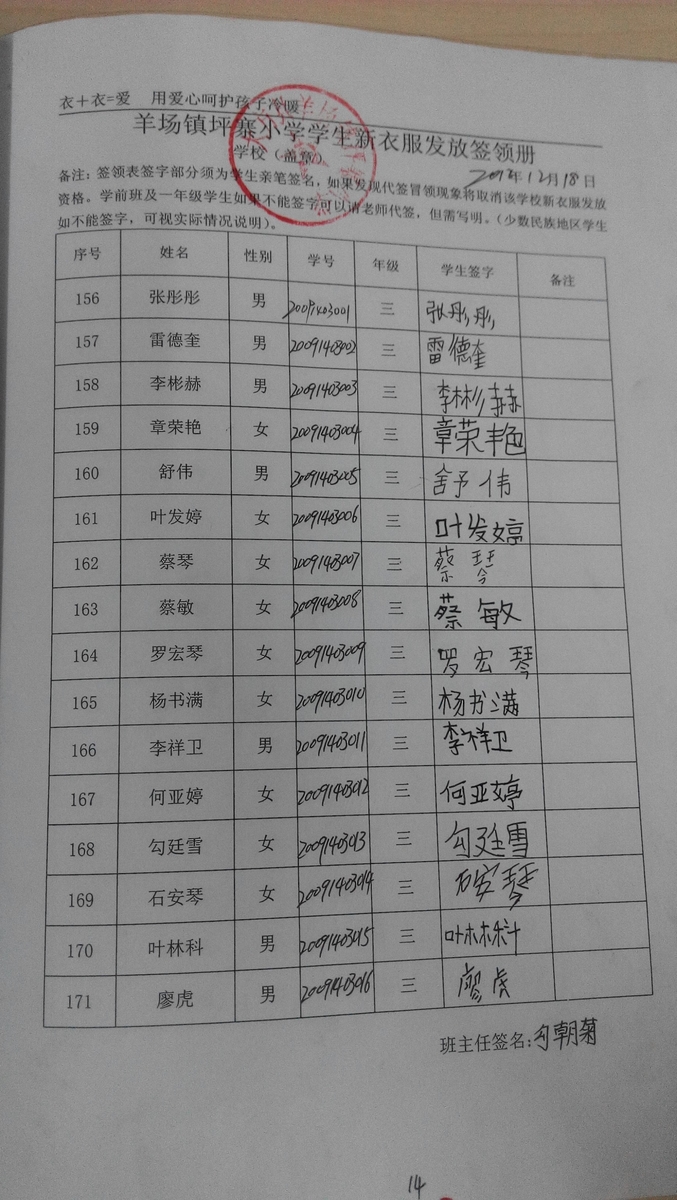 衣+衣=爱 用爱心呵护孩子冷暖
羊场镇坪寨小学学生新衣服发放签领册
学校（盖章） 12月18日
备注：签领表签字部分须为学生亲笔签名，如果发现代签冒领现象将取消该学校新衣服发放
资格。学前班及一年级学生如果不能签字可以请老师代签，但需写明。（少数民族地区学生
如不能签字，可视实际情况说明）。
序号 姓名 性别 学号 年级 学生签字 备注
156 张彤彤 男 20091403001 三 张彤彤
157 雷德奎 男 20091403002 三 雷德奎
158 李彬赫 男 20091403003 三 李彬赫
159 章荣艳 女 20091403004 三 章荣艳
160 舒伟 男 20091403005 三 舒伟
161 叶发婷 女 20091403006 三 叶发婷
162 蔡琴 女 20091403007 三 蔡琴
163 蔡敏 女 20091403008 三 蔡敏
164 罗宏琴 女 20091403009 三 罗宏琴
165 杨书满 女 20091403010 三 杨书满
166 李祥卫 男 20091403011 三 李祥卫
167 何亚婷 女 20091403012 三 何亚婷
168 勾廷雪 女 20091403013 三 勾廷雪
169 石安琴 女 20091403014 三 石安琴
170 叶林科 男 20091403015 三 叶林科
171 廖虎 男 20091403016 三 廖虎
班主任签名:勾朝菊
14